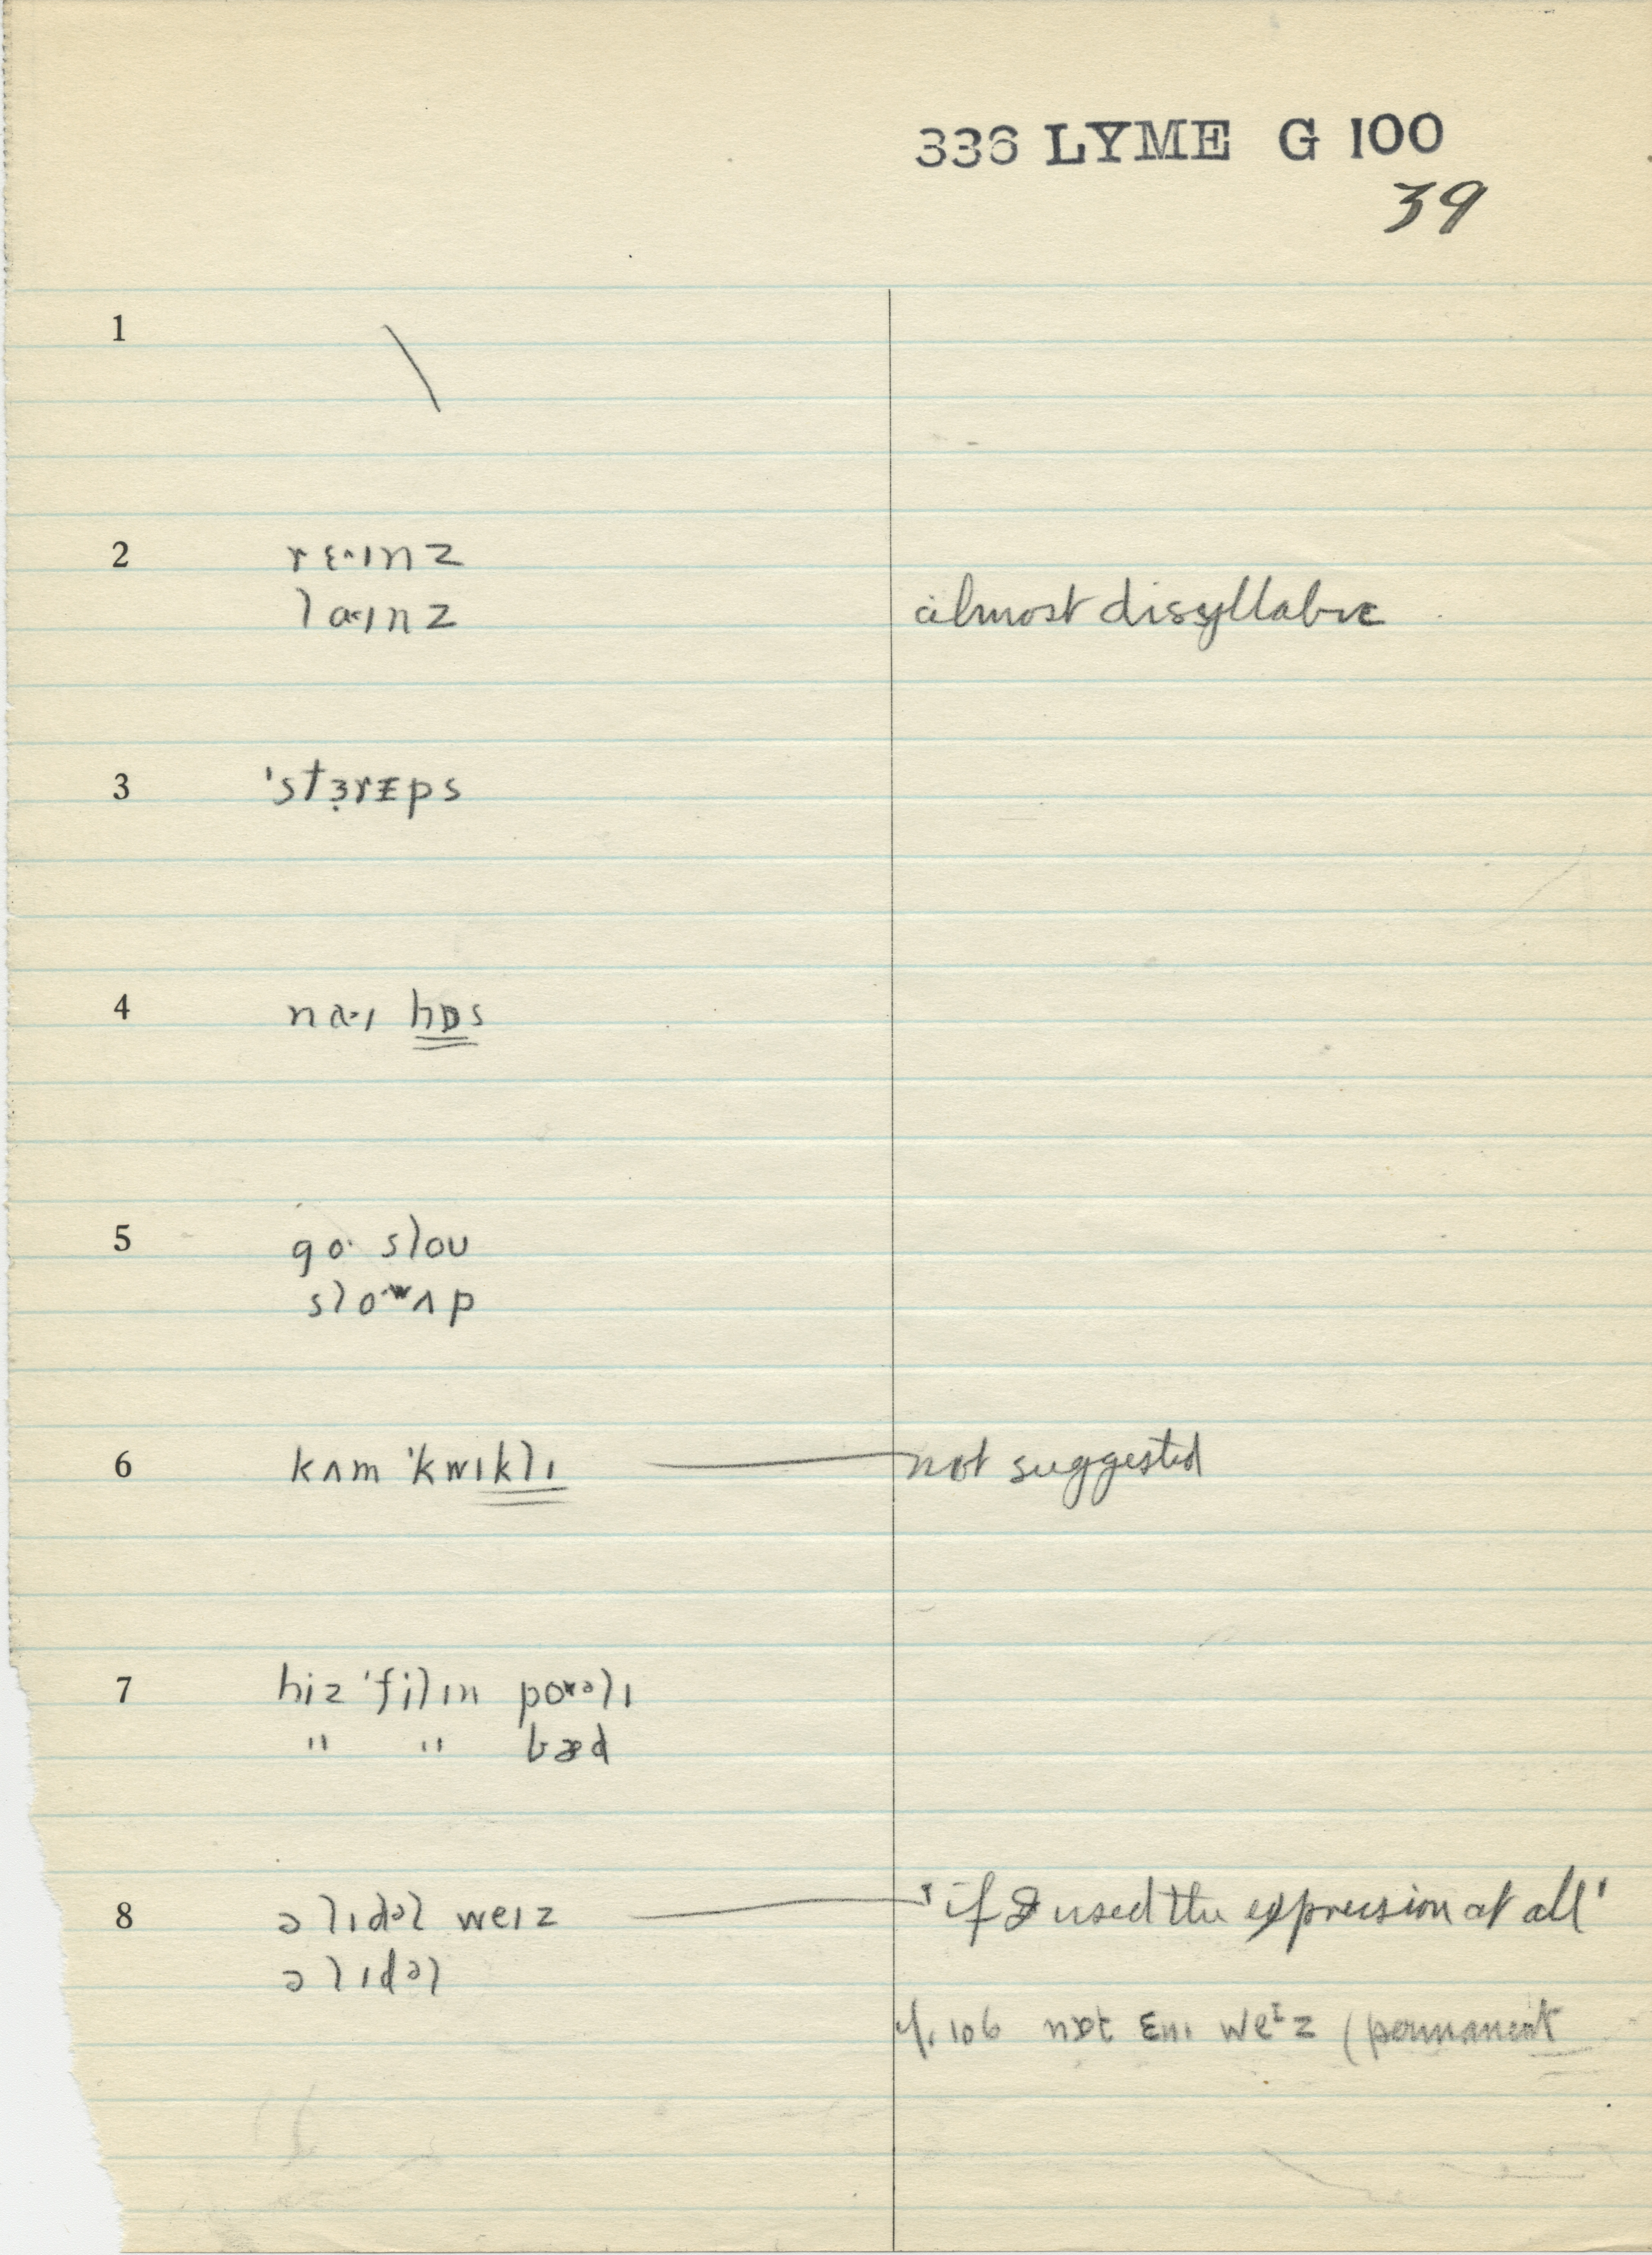 336 LYME G 100
39
1 \
2 rɛ·ɪnz
lɑ·ɪnz almost disyllabic
3 'stɜ̣rᵻps
4 nɑ·ɪ hɒs
5 go· sloʊ
slo·ʷʌp
6 kʌm 'kwɪklɪ — not suggested
7 hiz 'filɪn poʊəlɪ
" " bæd
8 ə lɪdəl weɪz — 'if I used the expression at all'
ə lɪdəl
cf. 106 nɒt ɛnɪ weᶦz (permanent